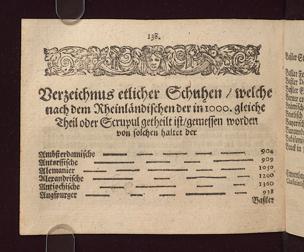 138.
Verzeichnus etlicher Schuhen / welche
nach dem Rheinländischen der in 1000. gleiche
Theil oder Scrupul getheilt ist / gemessen worden
von solchen haltet der
Ambsterdamische 904
Antorffische 909
Alemanier 1050
Alexandrische 1200
Antiochische 1360
Augspurger 938
Basler